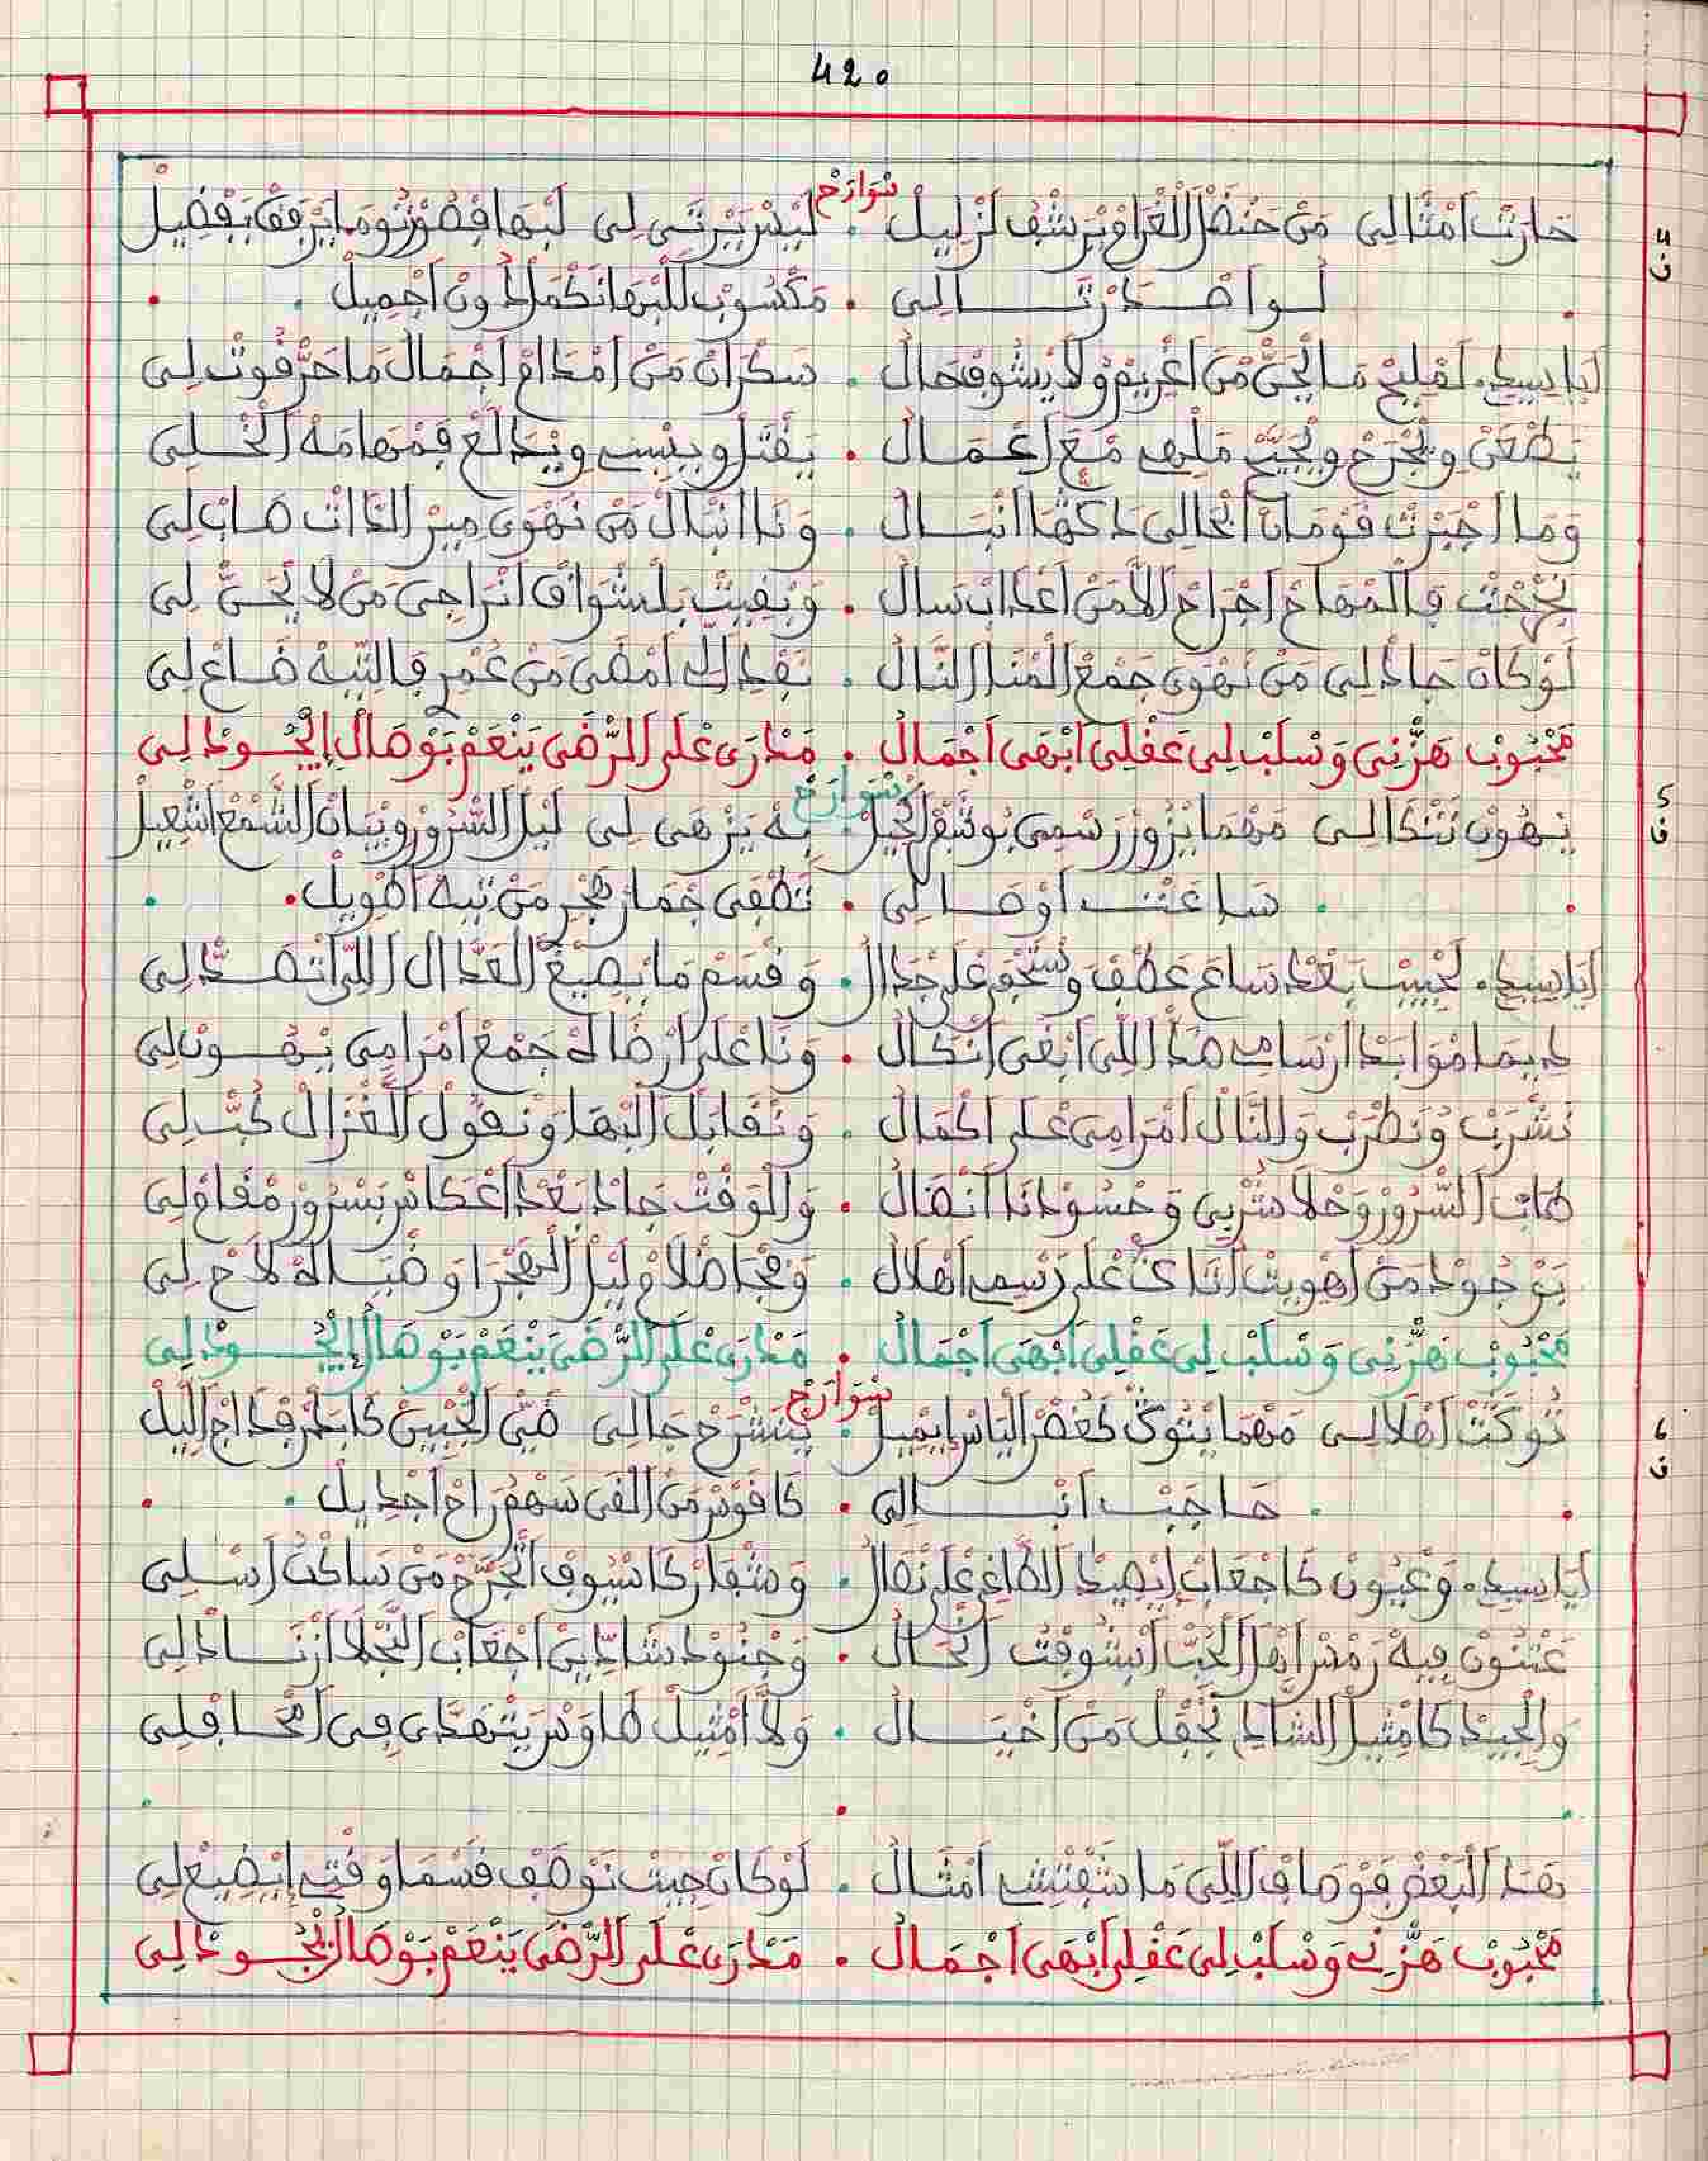 420
سْوَارَحْ
حَارَتْ اَمْثَالِي مَنْ حَنْضَلْ الْغْرَامْ يَرْشَفْ لَزْلِيلْ . لَيْسَ يَرْثَى لِي لَبْهَا فِصُورْتُو مَا يَرْفَقْ بَفْضِيلْ
4 ف
لُـوا صْـدَرْتَــالِي . مَكْسُوبْ لَلْبْهَا نَكْمَلْ دُونْ اَجْمِيلْ
اَيَا سِيدِي . لَمْلِيحْ مَا الْحَنّْ مْنْ اَغْرِيمُ وُلَا يْشُوفْ حَالُ . سَكْرَانْ مَنْ اَمْدَامْ اَجْمَالُ مَا حَرّْ فُوتْ لِي
يَطْعَنْ وِيْجْرَحْ وِيْجَيَّحْ مَلْهِي مْعَ اَعْمَـالُ . يَقْتَلْ وِيِيسِي وِيْدَالَعْ فَمْهَامَهْ اَلْخْـلِي
وَمَا اَجْبَرْتْ قَوْمَانْ اَلْحَالِي دَكّْهَا اَنْبَـالُ . وَنَا اَنْبَالْ مَنْ نَهْوَى مِيرْ الذَّاتْ صَابْ لِي
نَجْحَتْ فَالْمْهَاجْ اَجْرَاحْ اَلَامَنْ اَعْدَابْ سَالُ . وَبْقِيتْ بَلْشْوَاقْ اَنْرَاجِي مَنْ لَا يْحَنّْ لِي
لَوْ كَانْ جَادْ لِي مَنْ نَهْوَى جَمْعْ الْمْنَا اَلنَّالُ . نَفْدِ الِّي اَمْضَى مَنْ عُمْرِ فَالتِّيهْ ضَـاعْ لِي
مَحْبُوبْ هَزّْنِي وَسْلَبْ لِي عَقْلِي اَبْهَى اَجْمَالُ . مَدْرَى عْلَى الرّْضَى يَنْعَمْ بَوْصَالُ اِيْجُـودْ لِي
سْوَارَحْ
يَـهْوَنْ تَنْكَالِـي مَهْمَا يْزُورْ رَسْمِي بُوشَفْرْ اَكْحِيلْ . بِهْ يَزْهَى لِي لَيْلْ السّْرُورْ وِيْبَانْ الشّْمَعْ اَشْعِيلْ
5 ف
سَـاعَتْ اَوْصَـالِي . تَطْفَى جْمَارْ هَجْرِ مَنْ تِيهْ اَطْوِيلْ
اَيَا سِيدِي . لَحْبِيبْ بَعْدْ سَاعَ عَطْفْ وُسْخَى عْلَى جْدَالُ . وَقْسَمْ مَا يْصِيغْ الْعَدَّالْ اَللِّي اَتْصَـدّْ لِي
دِيمَا مْوَابَدْ اَرْسَامِي هَدْ اَللِّي اَبْغَى اَنْكَالُ . وَنَا عْلَى اَرْضَاهْ جَمْعْ اَمْرَامِي يَـهْـوَنْ لِي
نَشْرَبْ وُنَطْرَبْ وَالنَّالْ اَمْرَامِي عْلَى اَكْمَالُ . وَنْقَابَلْ الْبْهَا وَنْقُولْ الْغْزَالْ حَبّْ لِي
طَابْ السّْرُورْ وَحْلَا شَرْبِي وَحْسُودْنَا اَنْصَالُ . وَالْوَقْتْ جَادْ بَعْدْ اَعْكَاسْ بَسْرُورْ مْقَامْ لِي
بَوْجُودْ مَنْ اَهْوِيتْ اَتَّاكَ عْلَى رَسْمِي اَهْلَالُ . وَمْحَا ظْلَامْ لِيلْ الْهَجْرَ اوَضْيَـاهْ لَاحْ لِي
مَحْبُوبْ هَزّْنِي وَسْلَبْ لِي عَقْلِي اَبْهَى اَجْمَالُ . مَدْرَى عْلَى الرّْضَى يَنْعَمْ بَوْصَالُ اِيْجُـودْ لِي
سْوَارَحْ
تُوكَتْ اَهْلَالِـي مَهْمَا يْتُوكْ كَغْصَنْ الْيَاسْ اِيمِيلْ . يَنْشْرَحْ حَالِي ضَيّْ الْجْبِينْ كَا بَدْرْ فْدَاجْ اللِّيلْ
6 ف
حَـاجَبْ اَنْبَـــالِي . كَا قَوْسْ مَنْ اَلْقَى سَهْمُ رَاحْ اَجْدِيلْ
اَيَا سِيدِي . وَعْيُونْ كَا جْعَابْ اِيْصِيدْ الطَّاغِي عْلَى نْصَالُ . وَشْفَارْ كَا سْيُوفْ اَتْجَرَّحْ مَنْ سَاكْتْ اَسْـلِي
عَنْنُونْ فِيهْ رَمْشْ اَهْلْ الْحُبّْ اَيْشُوفْتْ اَلْحَالُ . وَجْنُودْ شَادِّينْ اَجْعَابْ النَّجْلَا اَزْنَـادْ لِي
وَالْجِيدْ كَا مْثِيلْ الشَّادِ يَجْفَلْ مَنْ اَخْيَــالُ . وَلَّا اَمْثِيلْ طَاوَسْ يَتْهَدَّى فِي اَمْحَـافْلِي
هَدَا الْبَعْضْ فَوْصَافْ اَللِّي مَا شَفْتْشِي اَمْثَـالُ . لَوْ كَانْ جِيتْ نَوْصَفْ قَسْمَا وَقْتِي اِيْضِيعْ لِي
مَحْبُوبْ هَزّْنِي وَسْلَبْ لِي عَقْلِي اَبْهَى اَجْمَـالُ . مَدْرَى عْلَى الرّْضَى يَنْعَمْ بَوْصَالُ اِيْجُـودْ لِي